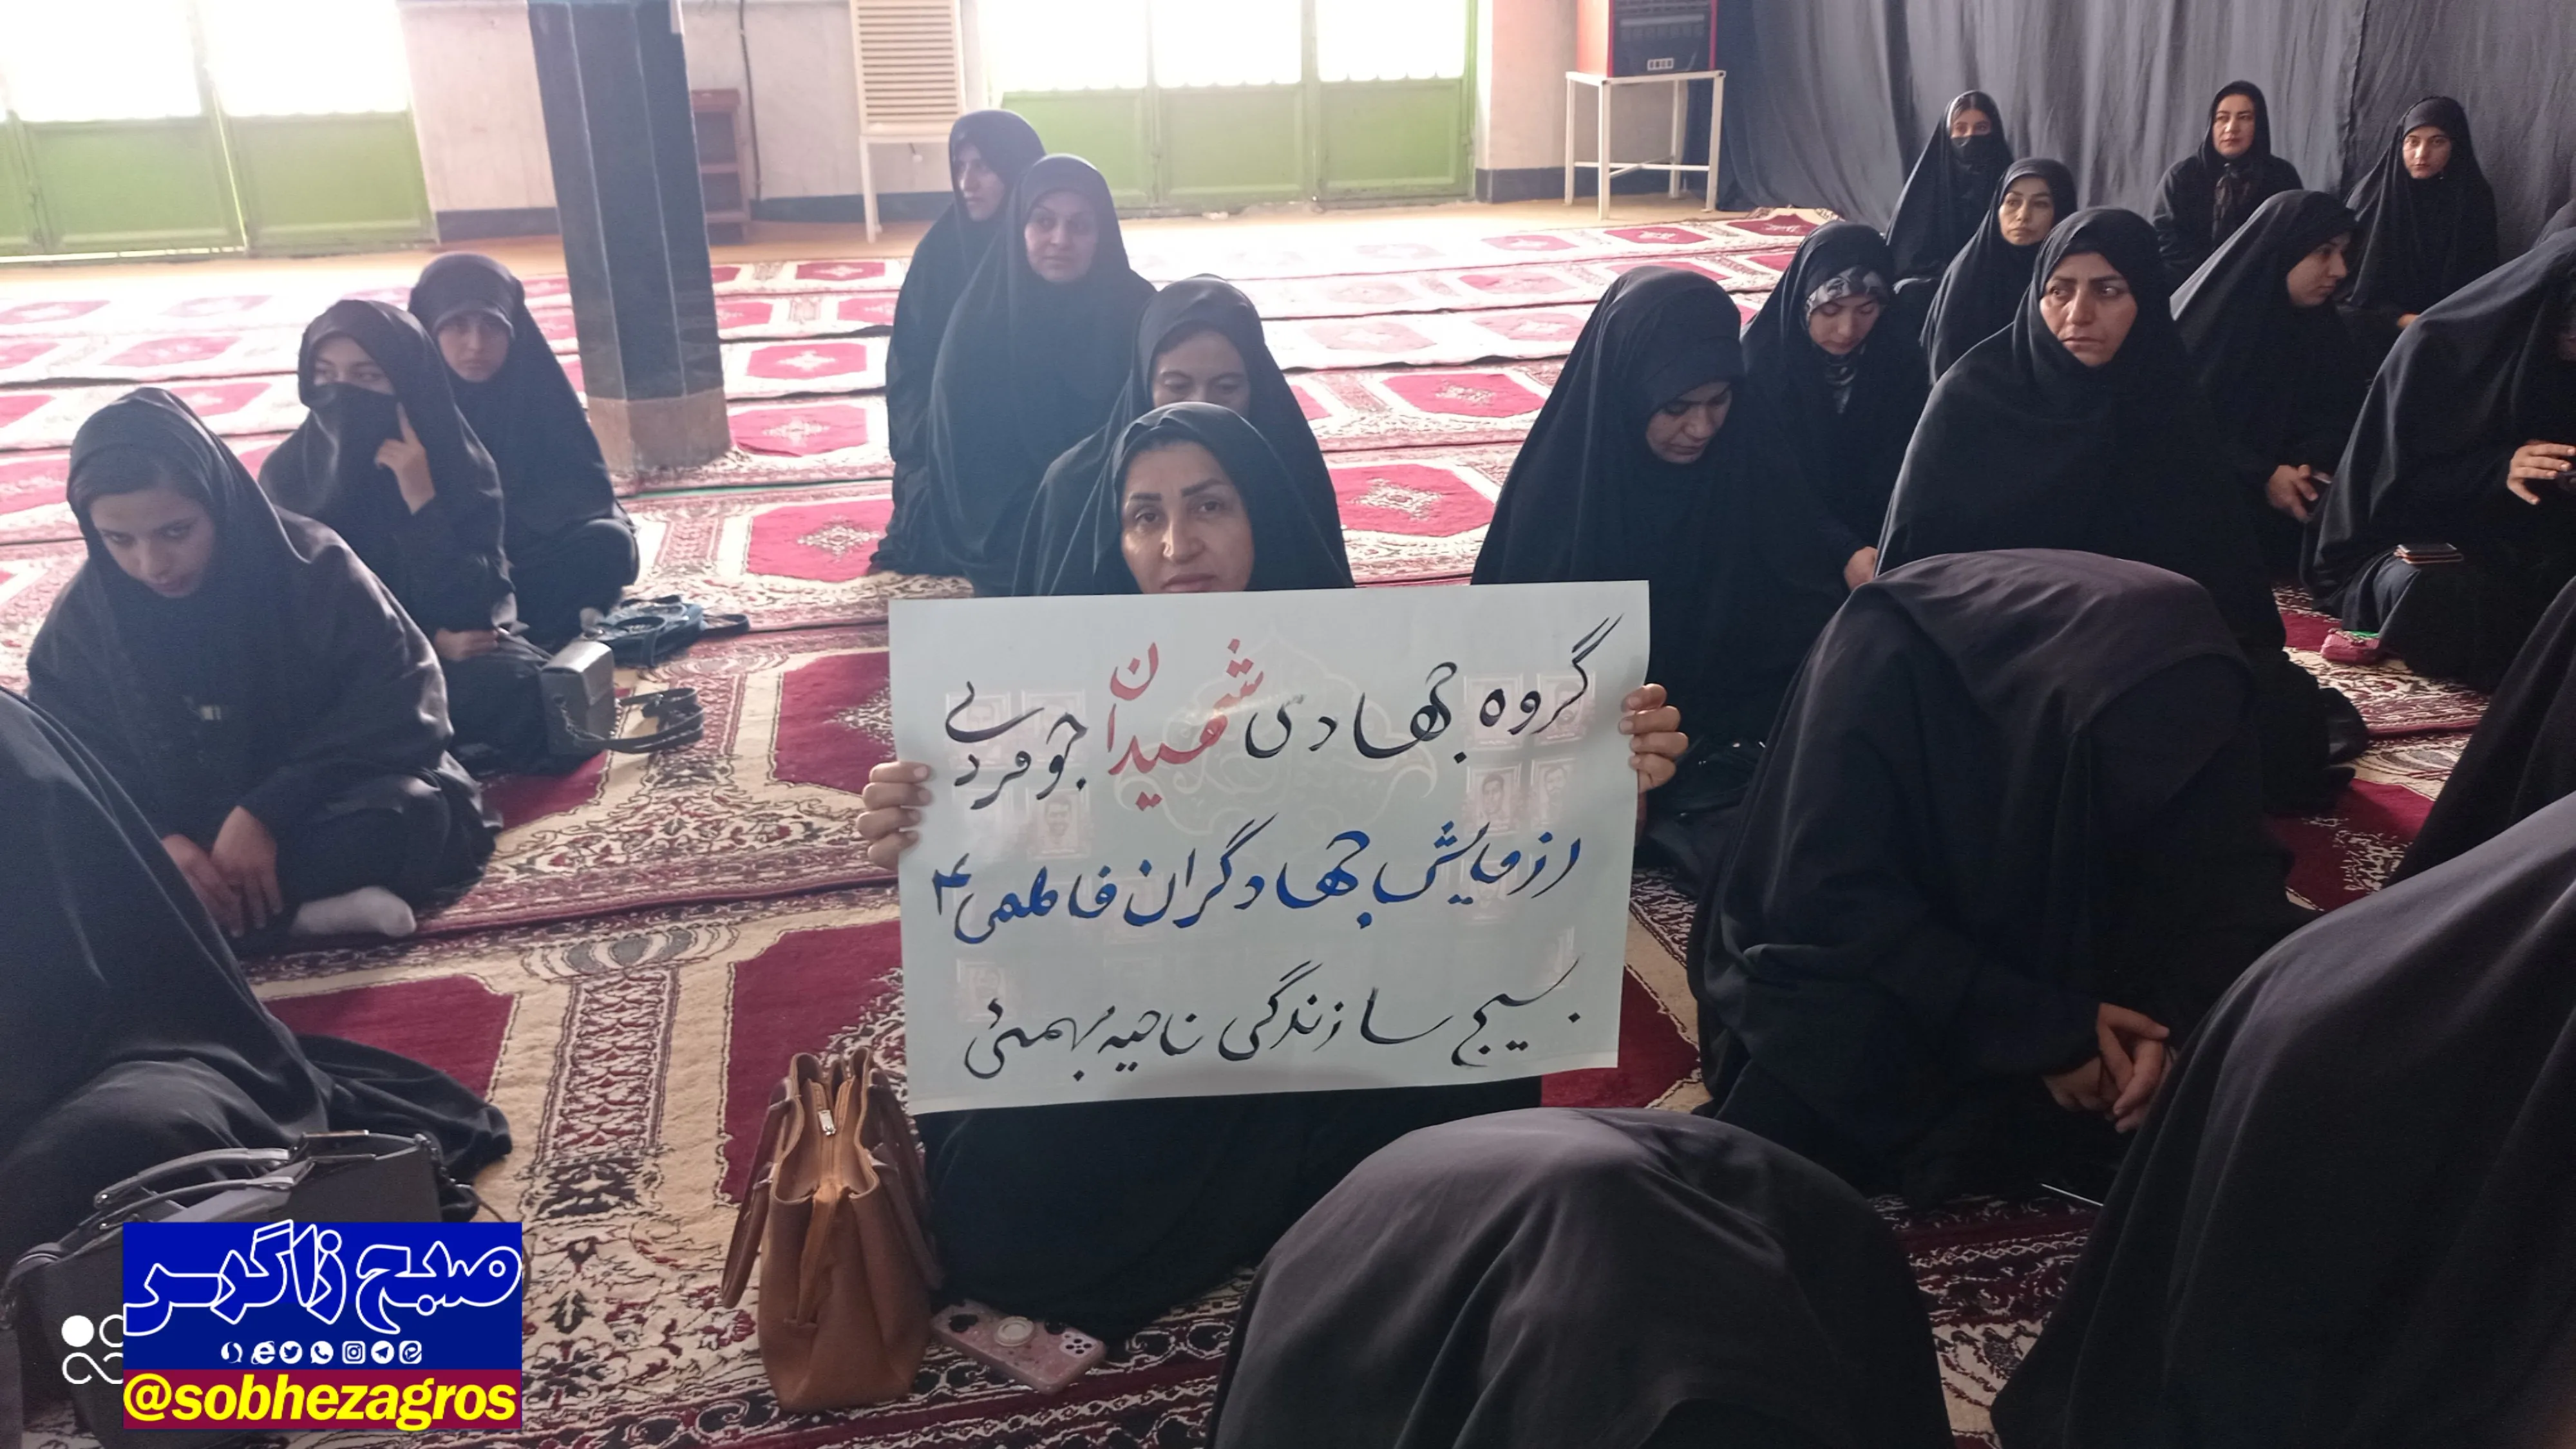 گروه جهادی شهیدان جوفردبی
رزمایش جهادگران فاطمی ۴
بسیج سازندگی ناحیه بهمئی
صبح زاگرس
@sobhezagros